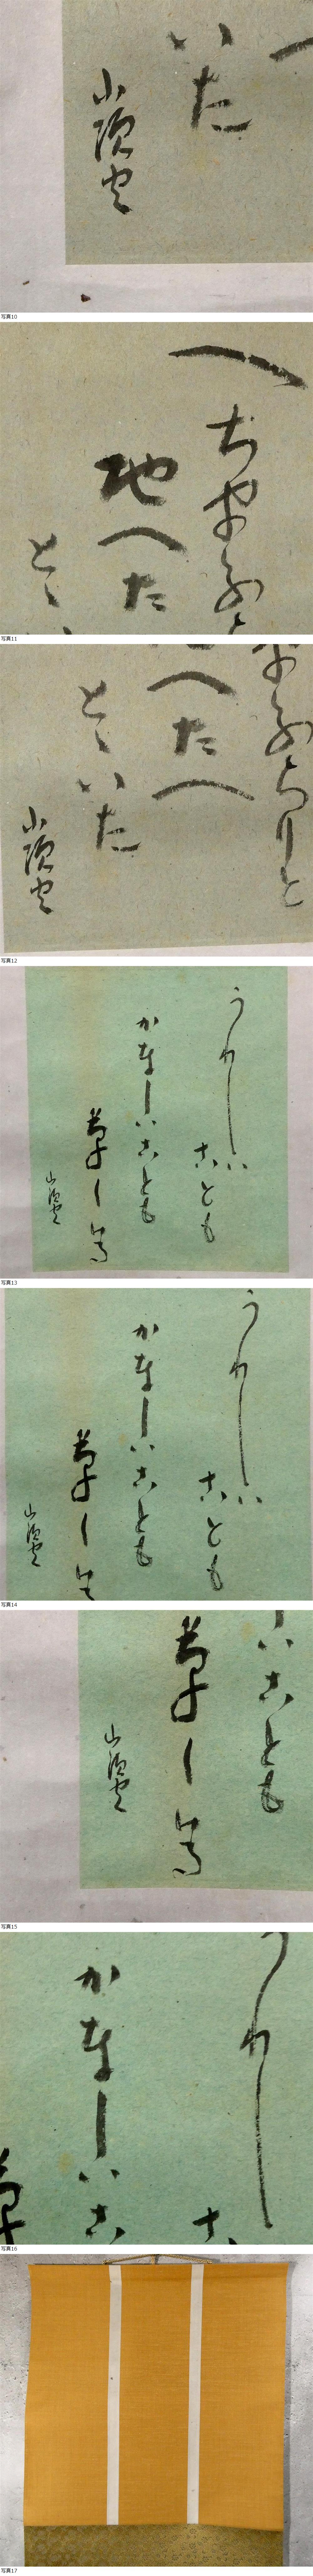 いた
山頭火
写真10
へちまふら
地へた
とゝ
写真11
まふらりと
へたへ
とゝいた
山頭火
写真12
うれしい
ことも
かなしいことも
草しける
山頭火
写真13
うれしい
ことも
かなしいことも
草しけ
山頭火
写真14
いことも
草しける
山頭火
写真15
うれし
こ
かなしいこ
草
写真16
写真17